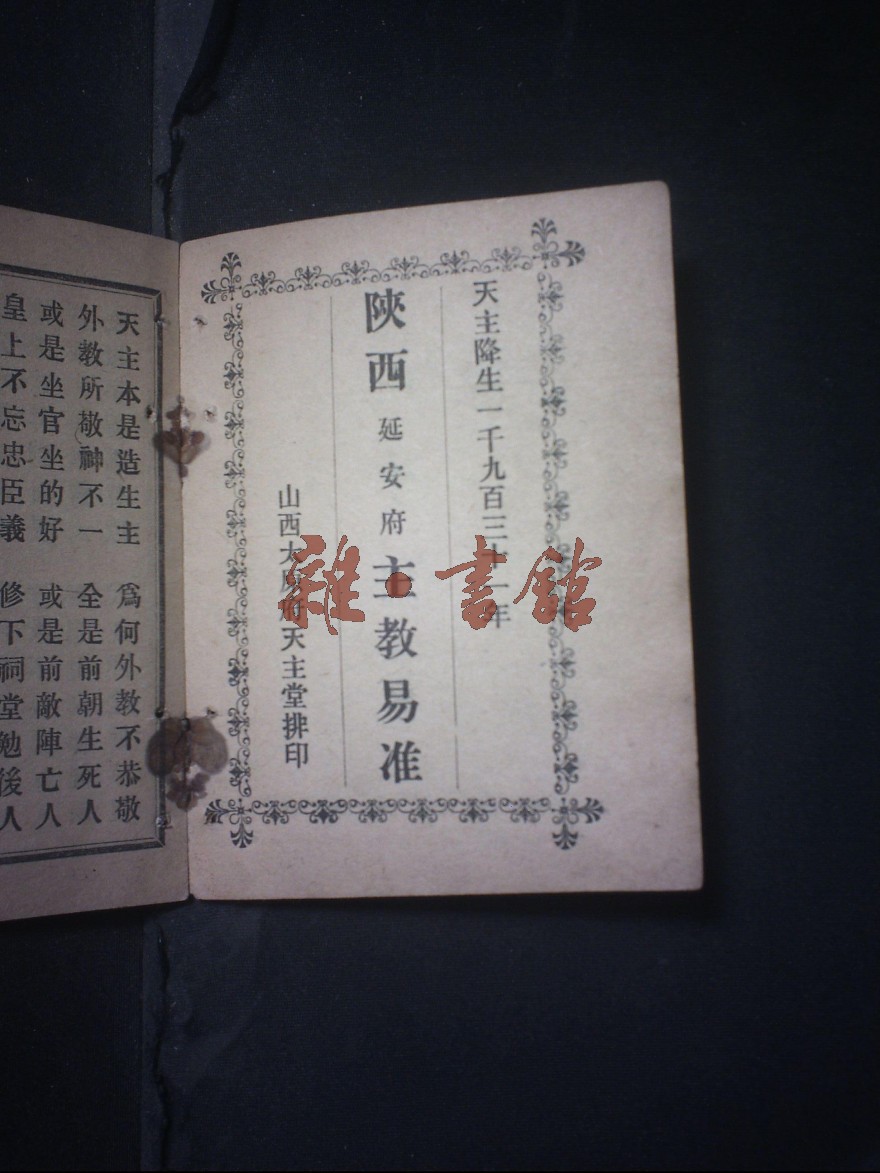 天主降生一千九百三十一年
陝西延安府主教易准
山西太原府天主堂排印
天主本是造生主 爲何外教不恭敬
外教所敬神不一 全是前朝生死人
或是坐官坐的好 或是前敵陣亡人
皇上不忘忠臣義 修下祠堂勉後人
雜·書館